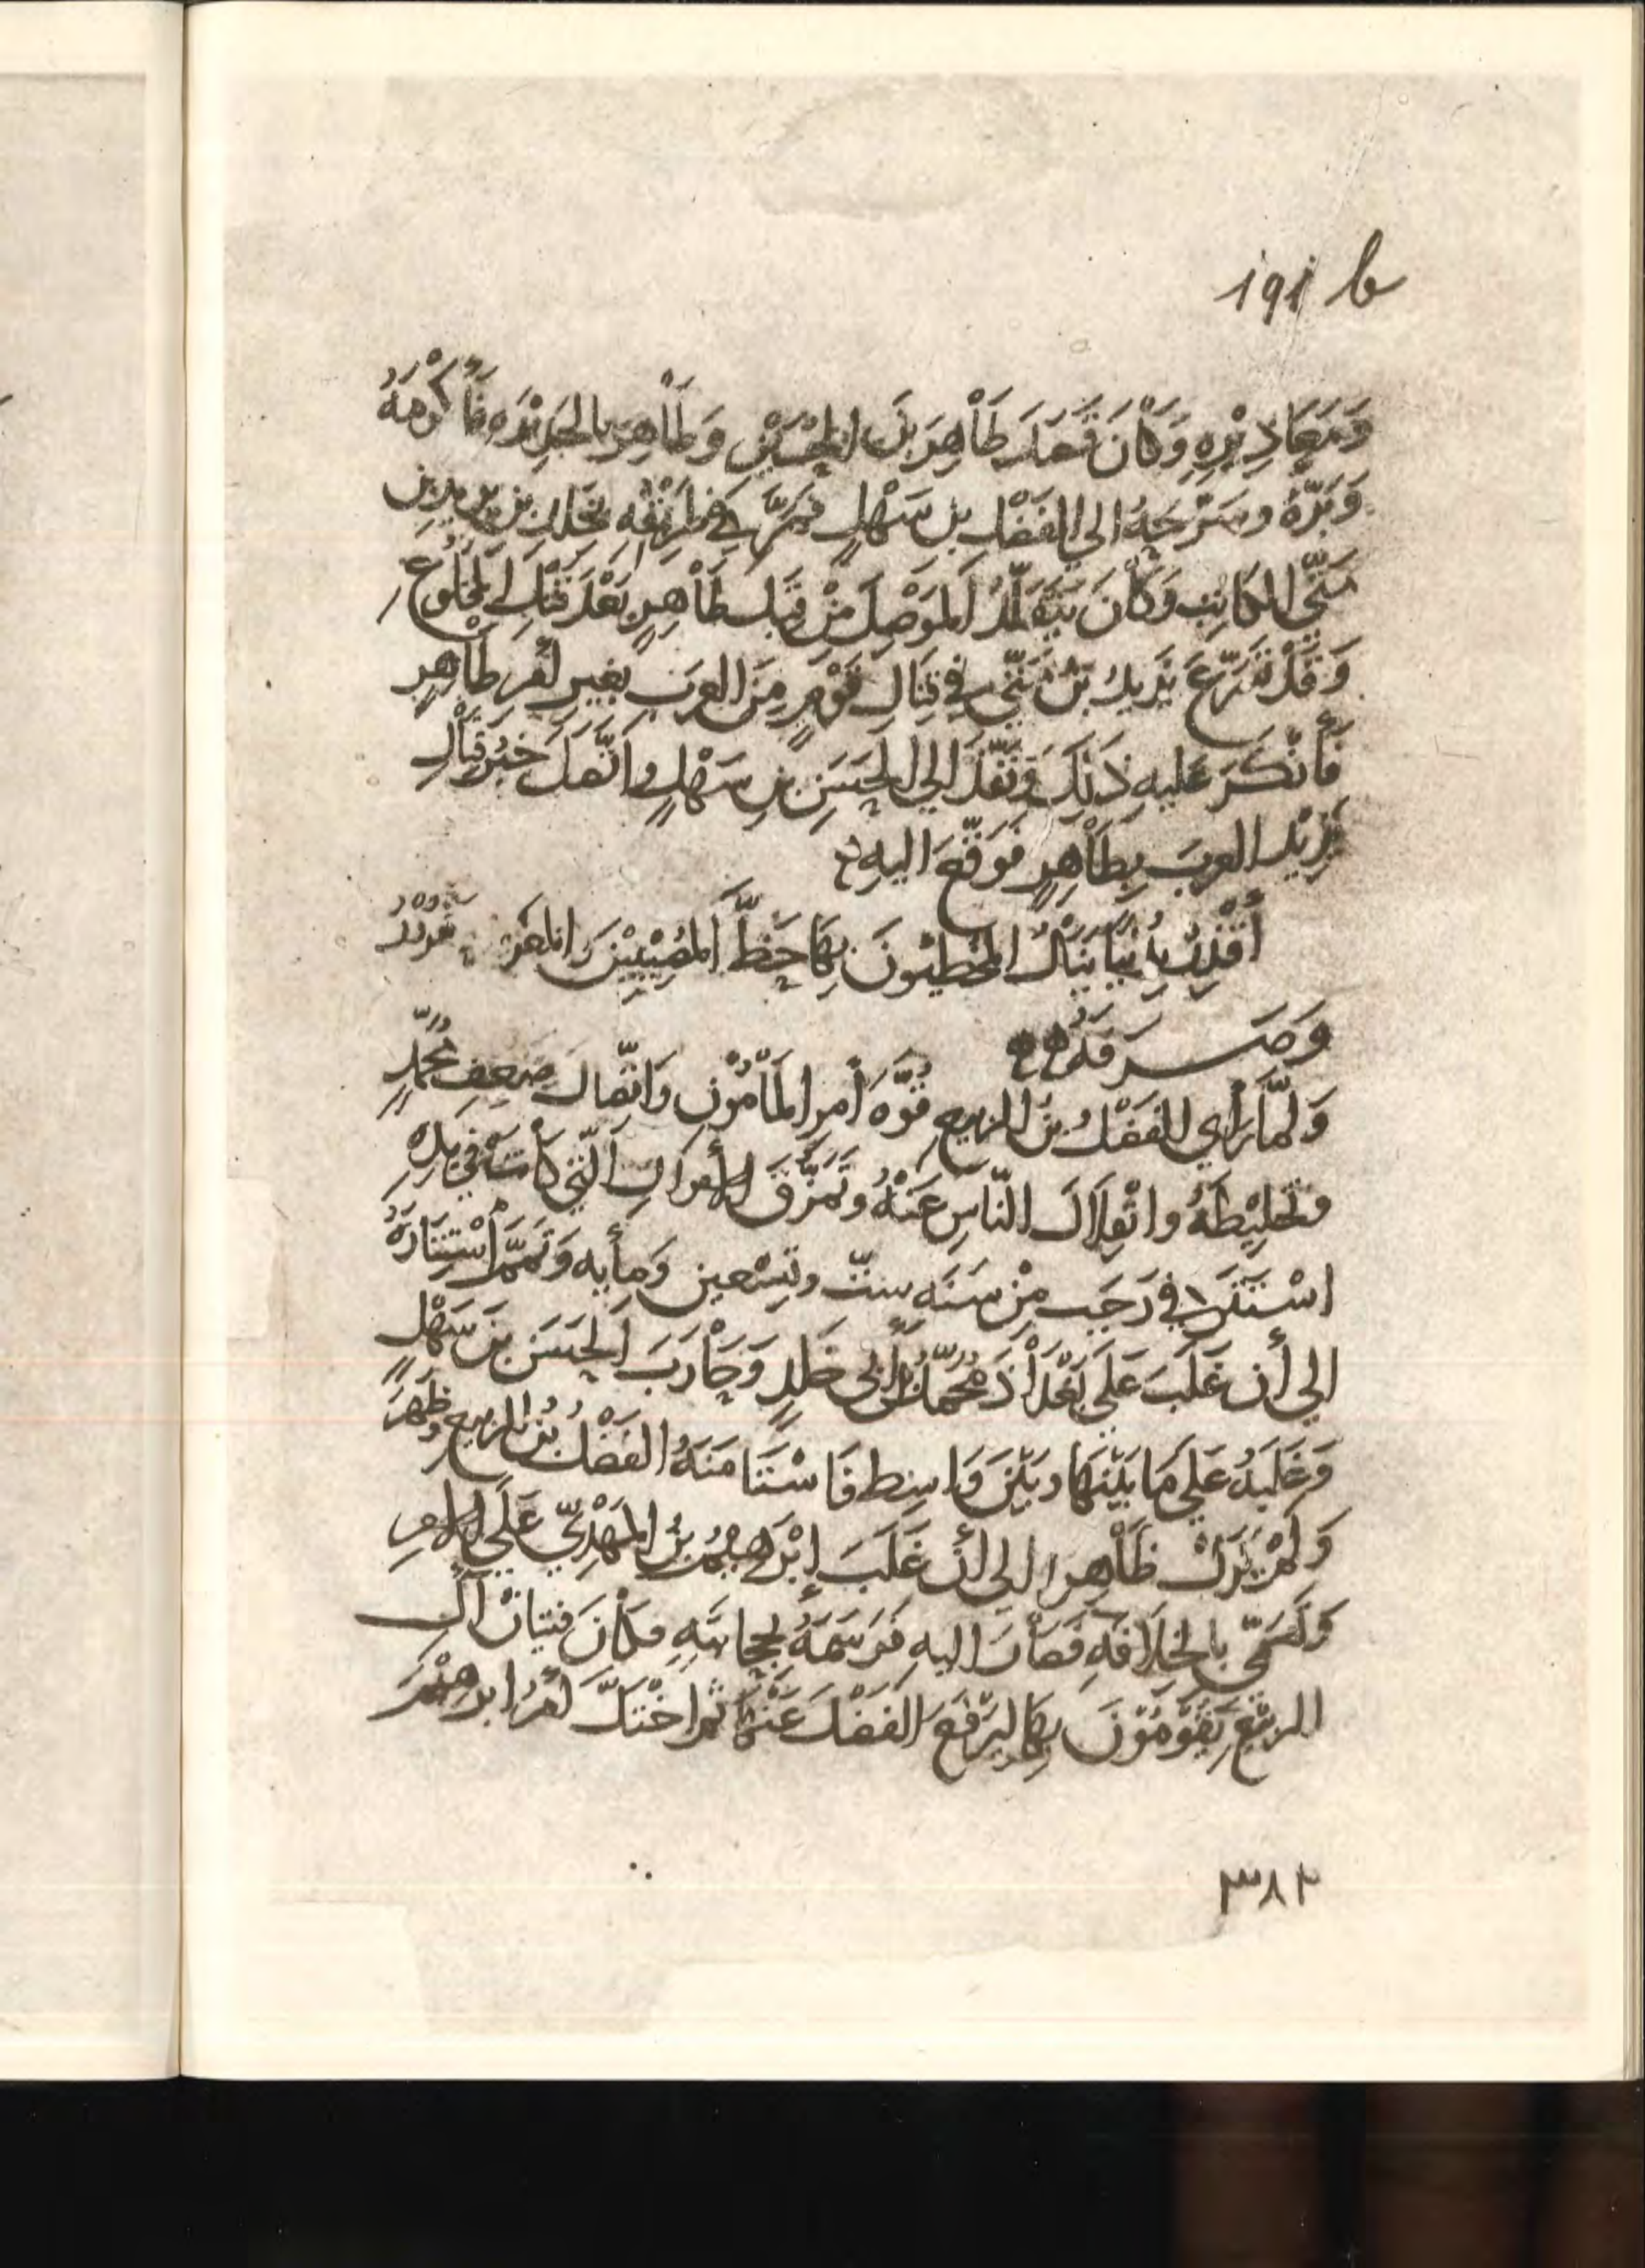 191 b
وَمَعَاذِيْرِهِ وَكَانَ قَصَدَ طَاْهِرَ بنَ الحُسَيْنِ وَطَاْهِر بالجَزِيْرَه فَأَكْرَمَهُ
وَبَرَّهُ وسَرَّحَهُ الى الفَضْلِ بن سَهْلٍ فمرَّ في طَرِيْقِهِ بن يزيد بن
مَتّى الكاتِبِ وَكَاْنَ يَتَقَلَّدُ الَموْصِلَ مِنْ قِبَلِ طَاْهِرٍ بَعْدَ قَتْلِ المخْلُوْعِ
وَقَدْ تَسَرَّعَ يَزِيدُ بْنُ مَتّى فِي قِتَالِ قَوْمٍ مِنَ العَرَبِ بغيرِ أمْرِ طَاْهِرٍ
فأَنْكَرَ عَليهِ ذَلِكَ وَنَفَّذَ الي الحَسَنِ بنِ سَهْلٍ واتّصَلَ خَبَرُ قِتَاْلِ
يَزِيْدَ العربَ بِطَاْهِرٍ فَوَقّعَ اليهِ
أُفٍّ لِدُنْيَا يَنَاْلُ المُخْطِئُونَ بِهَا حَظَّ المُصِيْبِيْنَ والمغْرُ
وَصَرَفَهُ
وَلَمّا رَأي الفَضْلُ بنُ الربيعِ قُوَّه أَمرِ المَأْمُوْنِ وَاتّصَالَ ضَعفِ مُحمّدٍ
وتَخليْطَهُ وانْفِلَالَ النّاسِ عَنْهُ وتَمَزُّقَ الأموَالِ الّتي كَاْنتْ في يَدِهِ
اسْتَتَرَ في رَجَبِ مِنْ سَنَه ستّ وتِسْعين وَمأيه وَتَمَّ أَسْتِتَارُهُ
الي أن غَلَبَ عَلَي بَغْدَاْذَ مُحمّدُ بنُ أبي خَلدٍ وَحَاْرَبَ الحَسَنَ بنَ سَهْلٍ
وَغَلَبَهُ عَلي مَا بَيْنَهَا وبَيْنَ وَاسِط فَاسْتَنَا مَنَهُ الفَضْلُ بْنُ الربيع وظَهَرَ
وَلَمْ يَزَلْ ظَاْهِرا الي أنْ غَلَبَ إبْرَهِيْمُ بنُ المَهْدِيّ عَلَي الامرِ
وَتَسَمّى بالخِلَافَهِ فَصَاْرَ اليهِ فَرَسَمَهُ بحِجابَتِهِ فكَاْنَ فتيانُ آلِ
الربيْعِ يَقُوْمُوْنَ بِهَا ليَرْفَعَ الفَضْلَ عَنْهَا ثم اخْتَلَّ أَمْرُ ابرهِيْمَ
٣٨٢